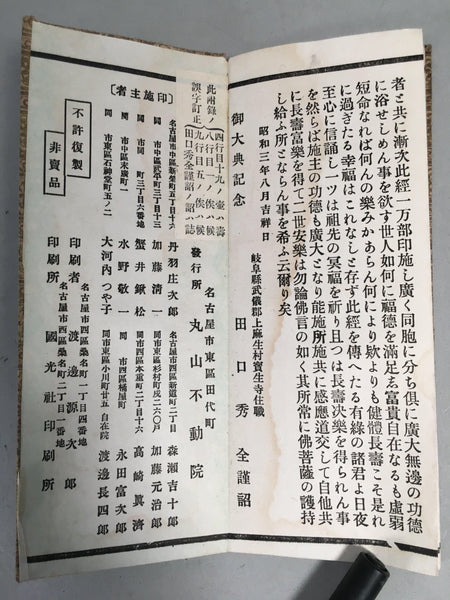 者と共に漸次此經一万部印施し廣く同胞に分ち倶に廣大無邊の功德
に浴せしめん事を欲す世人如何に福德を滿足志富貴自在なるも虛弱
短命なれば何んの樂みかあらん何により歟よりも健體長壽こそ是れ
に過ぎたる幸福はこれなしと存ず此經を傳へたる有緣の諸君よ日夜
至心に信誦し一ツは祖先の冥福を祈り且つは長壽决樂を得られん事
を然らば施主の功德も廣大となり能施所施共に感應道交して自他共
に長壽富樂を得て二世安樂は勿論佛言の如く其所常に佛菩薩の護持
し給ふ所とならん事を希ふ云爾り矣
昭和三年八月吉祥日
御大典記念
岐阜縣武儀郡上麻生村寶生寺住職
田口秀全謹詔
此附錄ノ
誤字訂正
四行目十九ノ臺ハ壽
八行目一ノ候ハ候
九行目五ノ俟ハ候
田口秀全謹詔ノ詔ハ誌
名古屋市東區田代町
發行所 丸山不動院
【印施主者】
名古屋市中區新榮町五丁目十六 丹羽庄次郎
同 市中區武平町三丁目十三 加藤清一
同 市同區 町三丁目六番地 蟹井鍬松
同 市中區末廣町一 水野敬一
同 市東區石神堂町五ノ二 大河內つや子
名古屋市西區新道町二丁目 森瀨吉十郎
同市東區杉村町戍二六〇戶 加藤元治郎
同 市西區本重町二丁目十六 高崎眞濟
同 市西區桶屋町 永田富次郎
同市東區小川町廿五 自在院 渡邊長四郎
不許復製
非賣品
名古屋市西區桑名町一丁目四番地
印刷者 渡邊源次郎
名古屋市西區桑名町二丁目一番地
印刷所 國光社印刷所